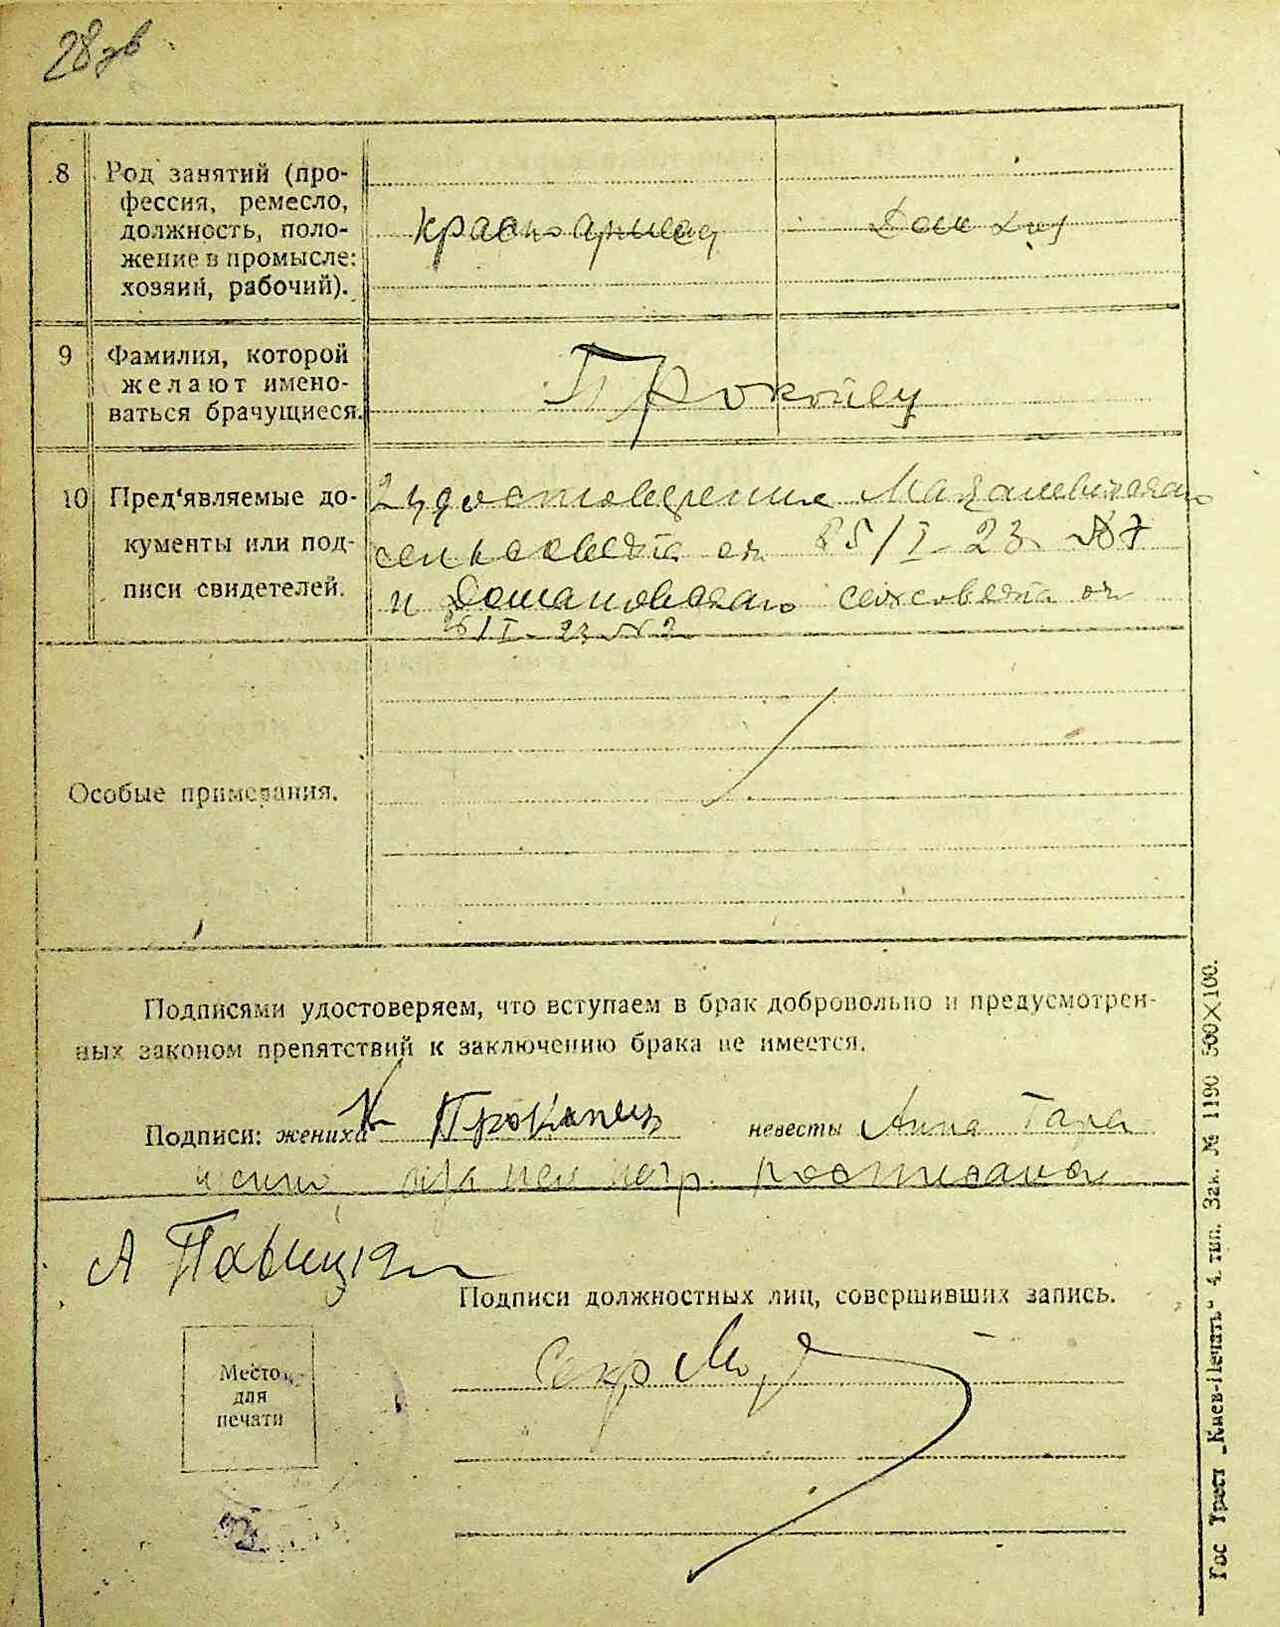 28 зв
8 Род занятий (про-
фессия, ремесло,
должность, поло-
жение в промысле:
хозяин, рабочий).
красноармеец
Дом хоз
9 Фамилия, которой
желают имено-
ваться брачущиеся.
Прокопец
10 Пред‘являемые до-
кументы или под-
писи свидетелей.
2 удостоверения
сельсовета от 25/I-23 №7
и Домановского сельсовета от
26/I-23 №2
Особые примечания.
Подписями удостоверяем, что вступаем в брак добровольно и предусмотрен-
ных законом препятствий к заключению брака не имеется.
Подписи: жениха Прокопец невесты Анна
негр. росписался
А
Подписи должностных лиц, совершивших запись.
Место
для
печати
Секр
Гос Трест „Киев-Печать“ 4 тип. Зак. № 1190 500×100.